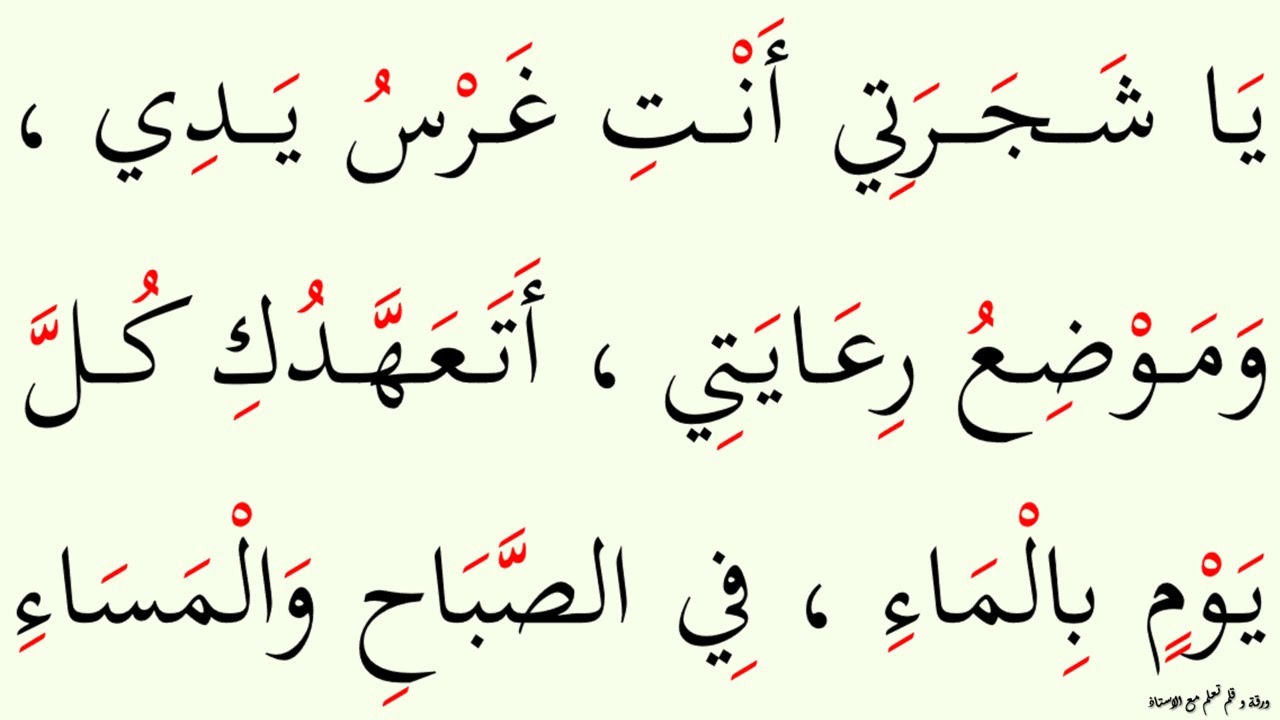 يَا شَجَرَتِي أَنْتِ غَرْسُ يَدِي ،
وَمَوْضِعُ رِعَايَتِي ، أَتَعَهَّدُكِ كُلَّ
يَوْمٍ بِالْمَاءِ ، فِي الصَّبَاحِ وَالْمَسَاءِ
ورقة و قلم تعلم مع الاستاذ